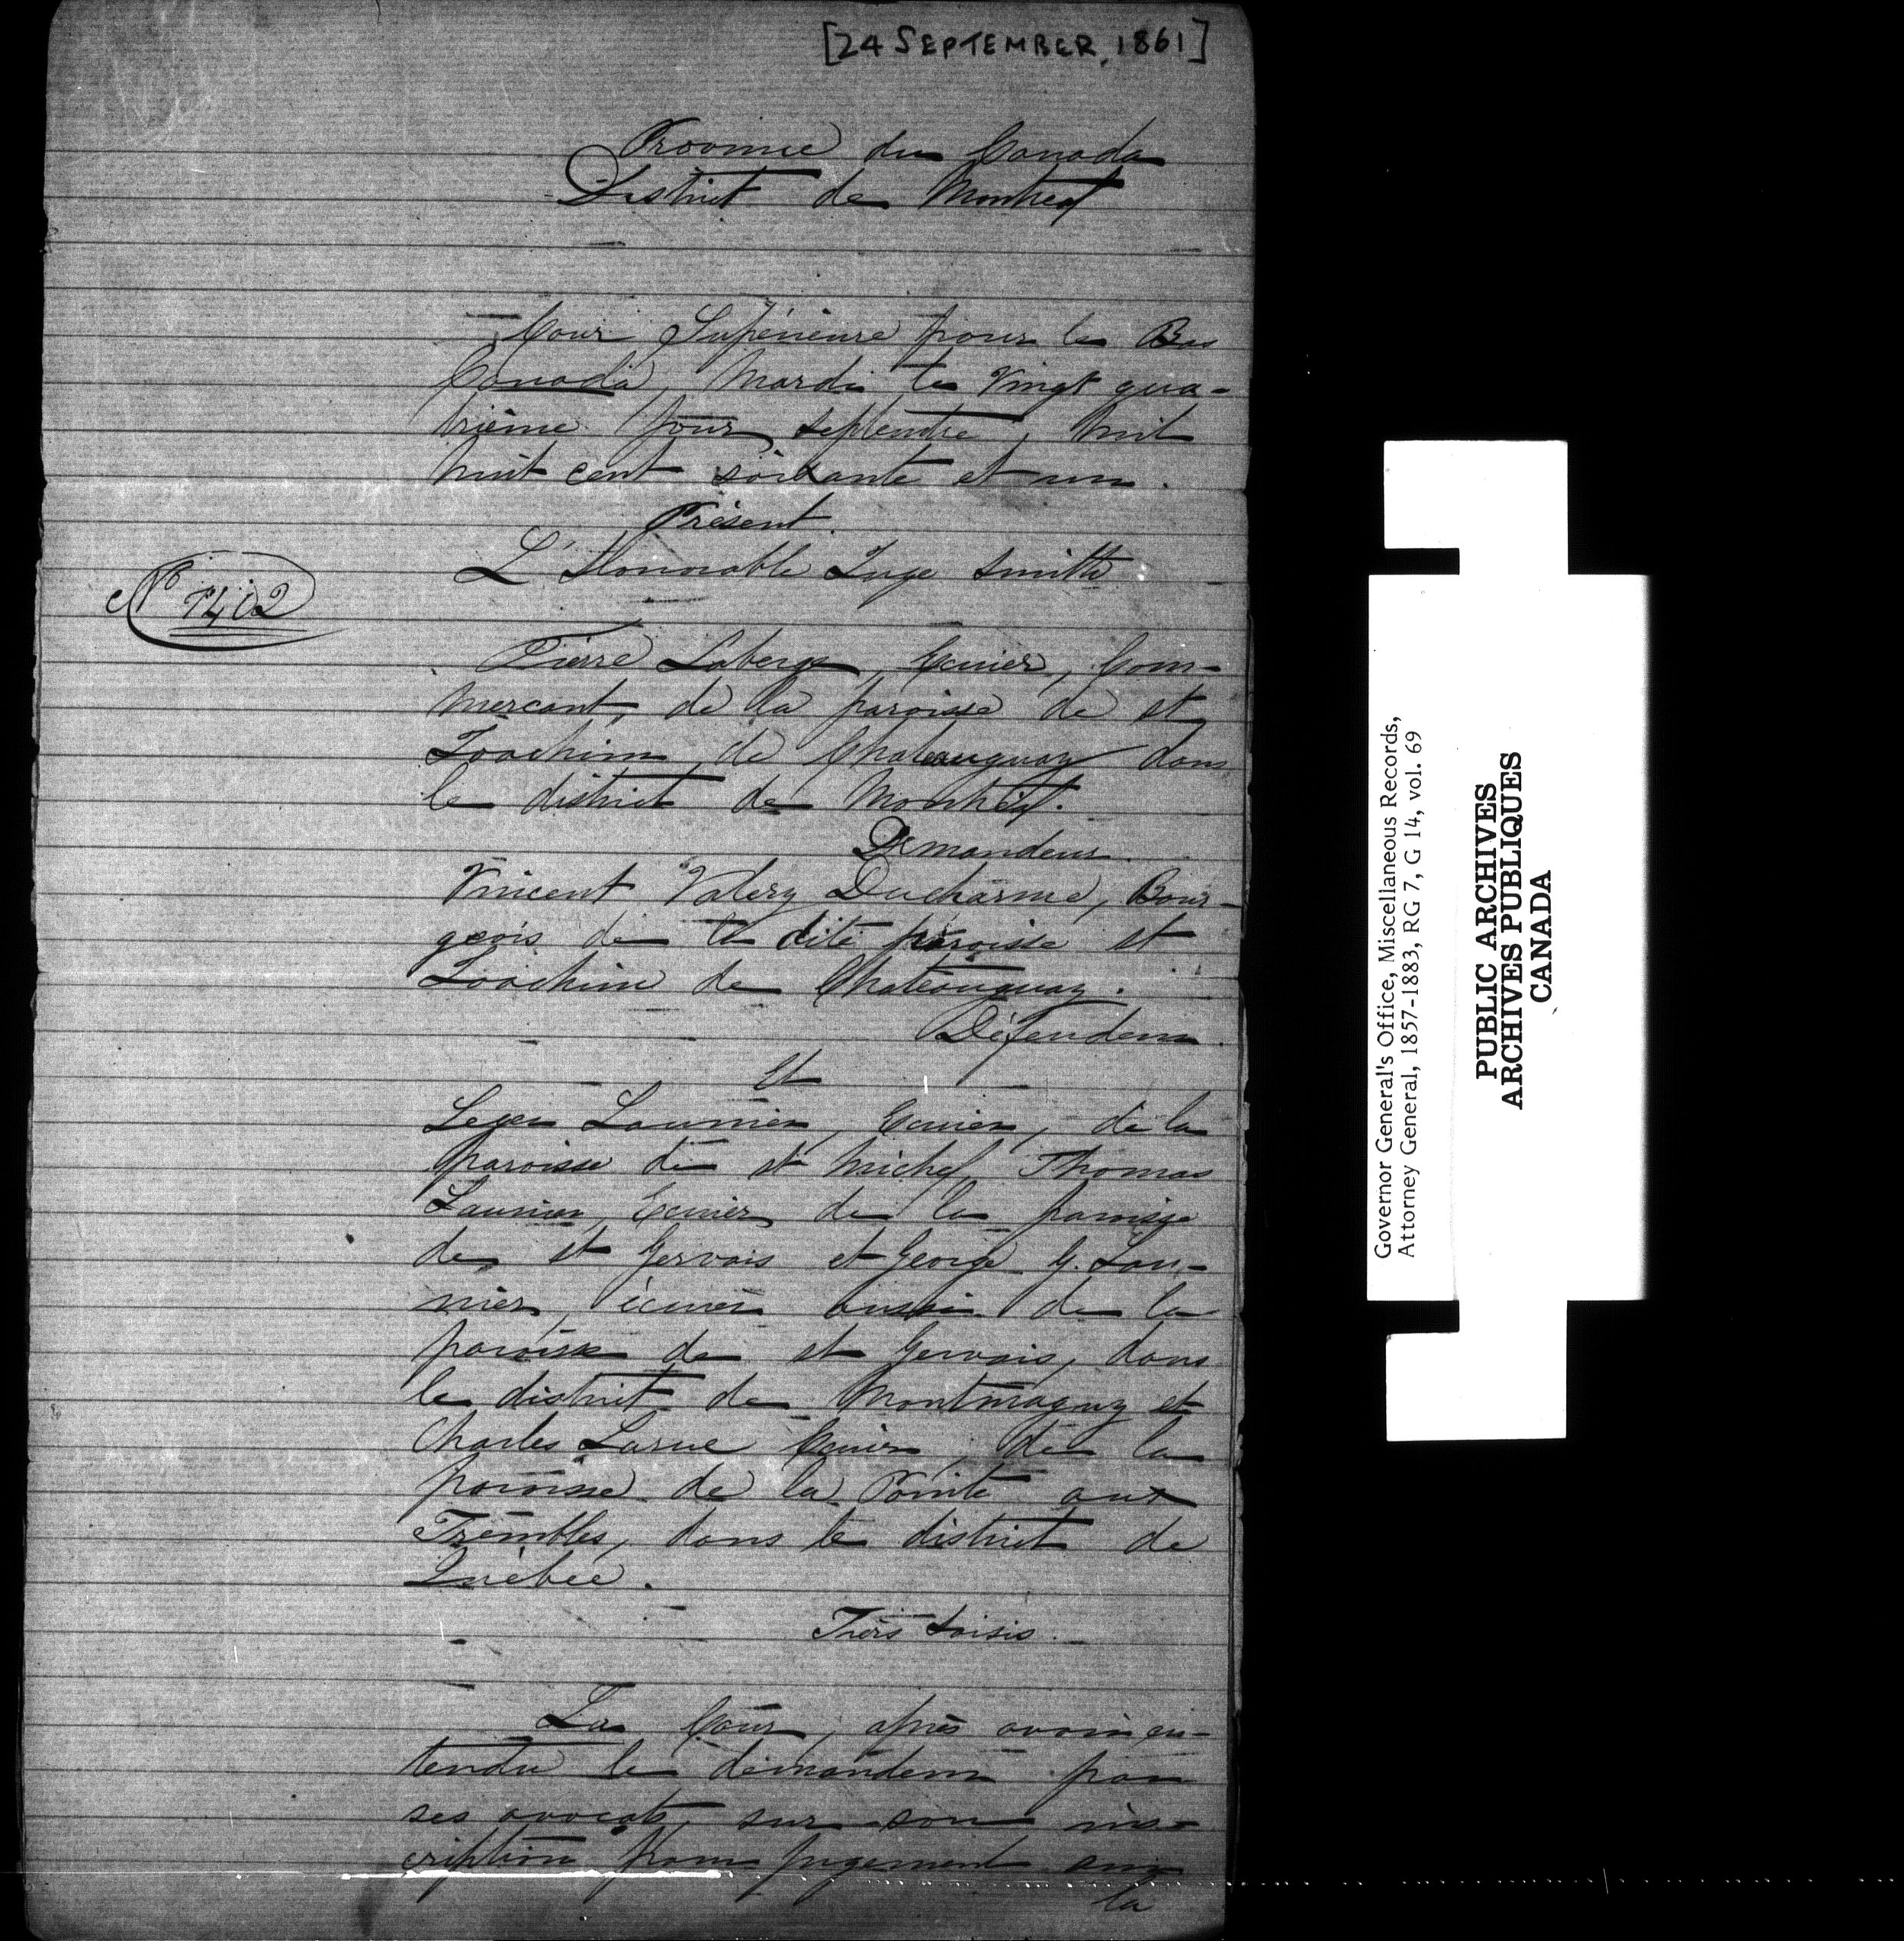 [24 SEPTEMBER, 1861]
Province du Canada
District de Montreal
Cour Supérieure pour le Bas
Canada, Mardi le Vingt qua-
trième jour septembre, mil
huit cent soixante et un.
Présent.
L'Honorable Juge Smith
No 1402
Pierre Laberge, Ecuier, Com-
mercant, de la paroisse de st
Joachim de Chateauguay dans
le district de Montréal.
Demandeur.
Vincent Valery Ducharme, Bour-
geois de la dite paroisse st
Joachim de Chateauguay.
Défendeur.
Et
Leger Launier, Ecuier, de la
paroisse de st Michel, Thomas
Launier, Ecuier de la paroisse
de st Gervais et George G. Lau-
nier, écuier aussi de la
paroisse de st Gervais, dans
le district de Montmagny et
Charles Larue Ecuier, de la
paroisse de la Pointe aux
Trembles, dans le district de
Québec.
Tiers Saisis.
La Cour, après avoir en-
tendu le demandeur par
ses avocats, sur son ins-
cription pour jugement sur
la
Governor General's Office, Miscellaneous Records,
Attorney General, 1857-1883, RG 7, G 14, vol. 69
PUBLIC ARCHIVES
ARCHIVES PUBLIQUES
CANADA